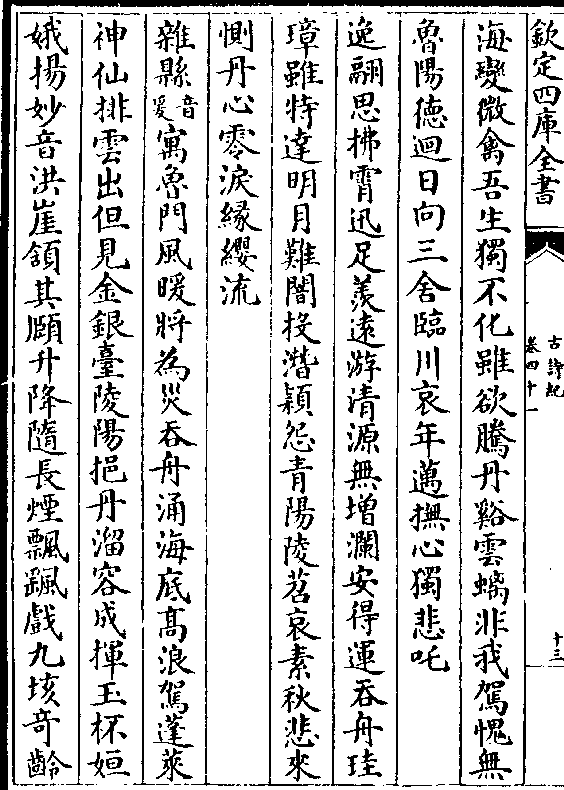 欽定四庫全書
古詩紀
卷四十一
十三
海變微禽吾生獨不化雖欲騰丹谿雲螭非我駕愧無
魯陽德迴日向三舍臨川哀年邁撫心獨悲吒
逸翮思拂霄迅足羨遠游清源無增瀾安得運吞舟珪
璋雖特達明月難闇投潛穎怨青陽陵苕哀素秋悲來
惻丹心零淚緣纓流
雜縣音爰寓魯門風暖將為災吞舟涌海底高浪駕蓬萊
神仙排雲出但見金銀臺陵陽挹丹溜容成揮玉杯姮
娥揚妙音洪崖頷其頤升降隨長煙飄颻戲九垓奇齡